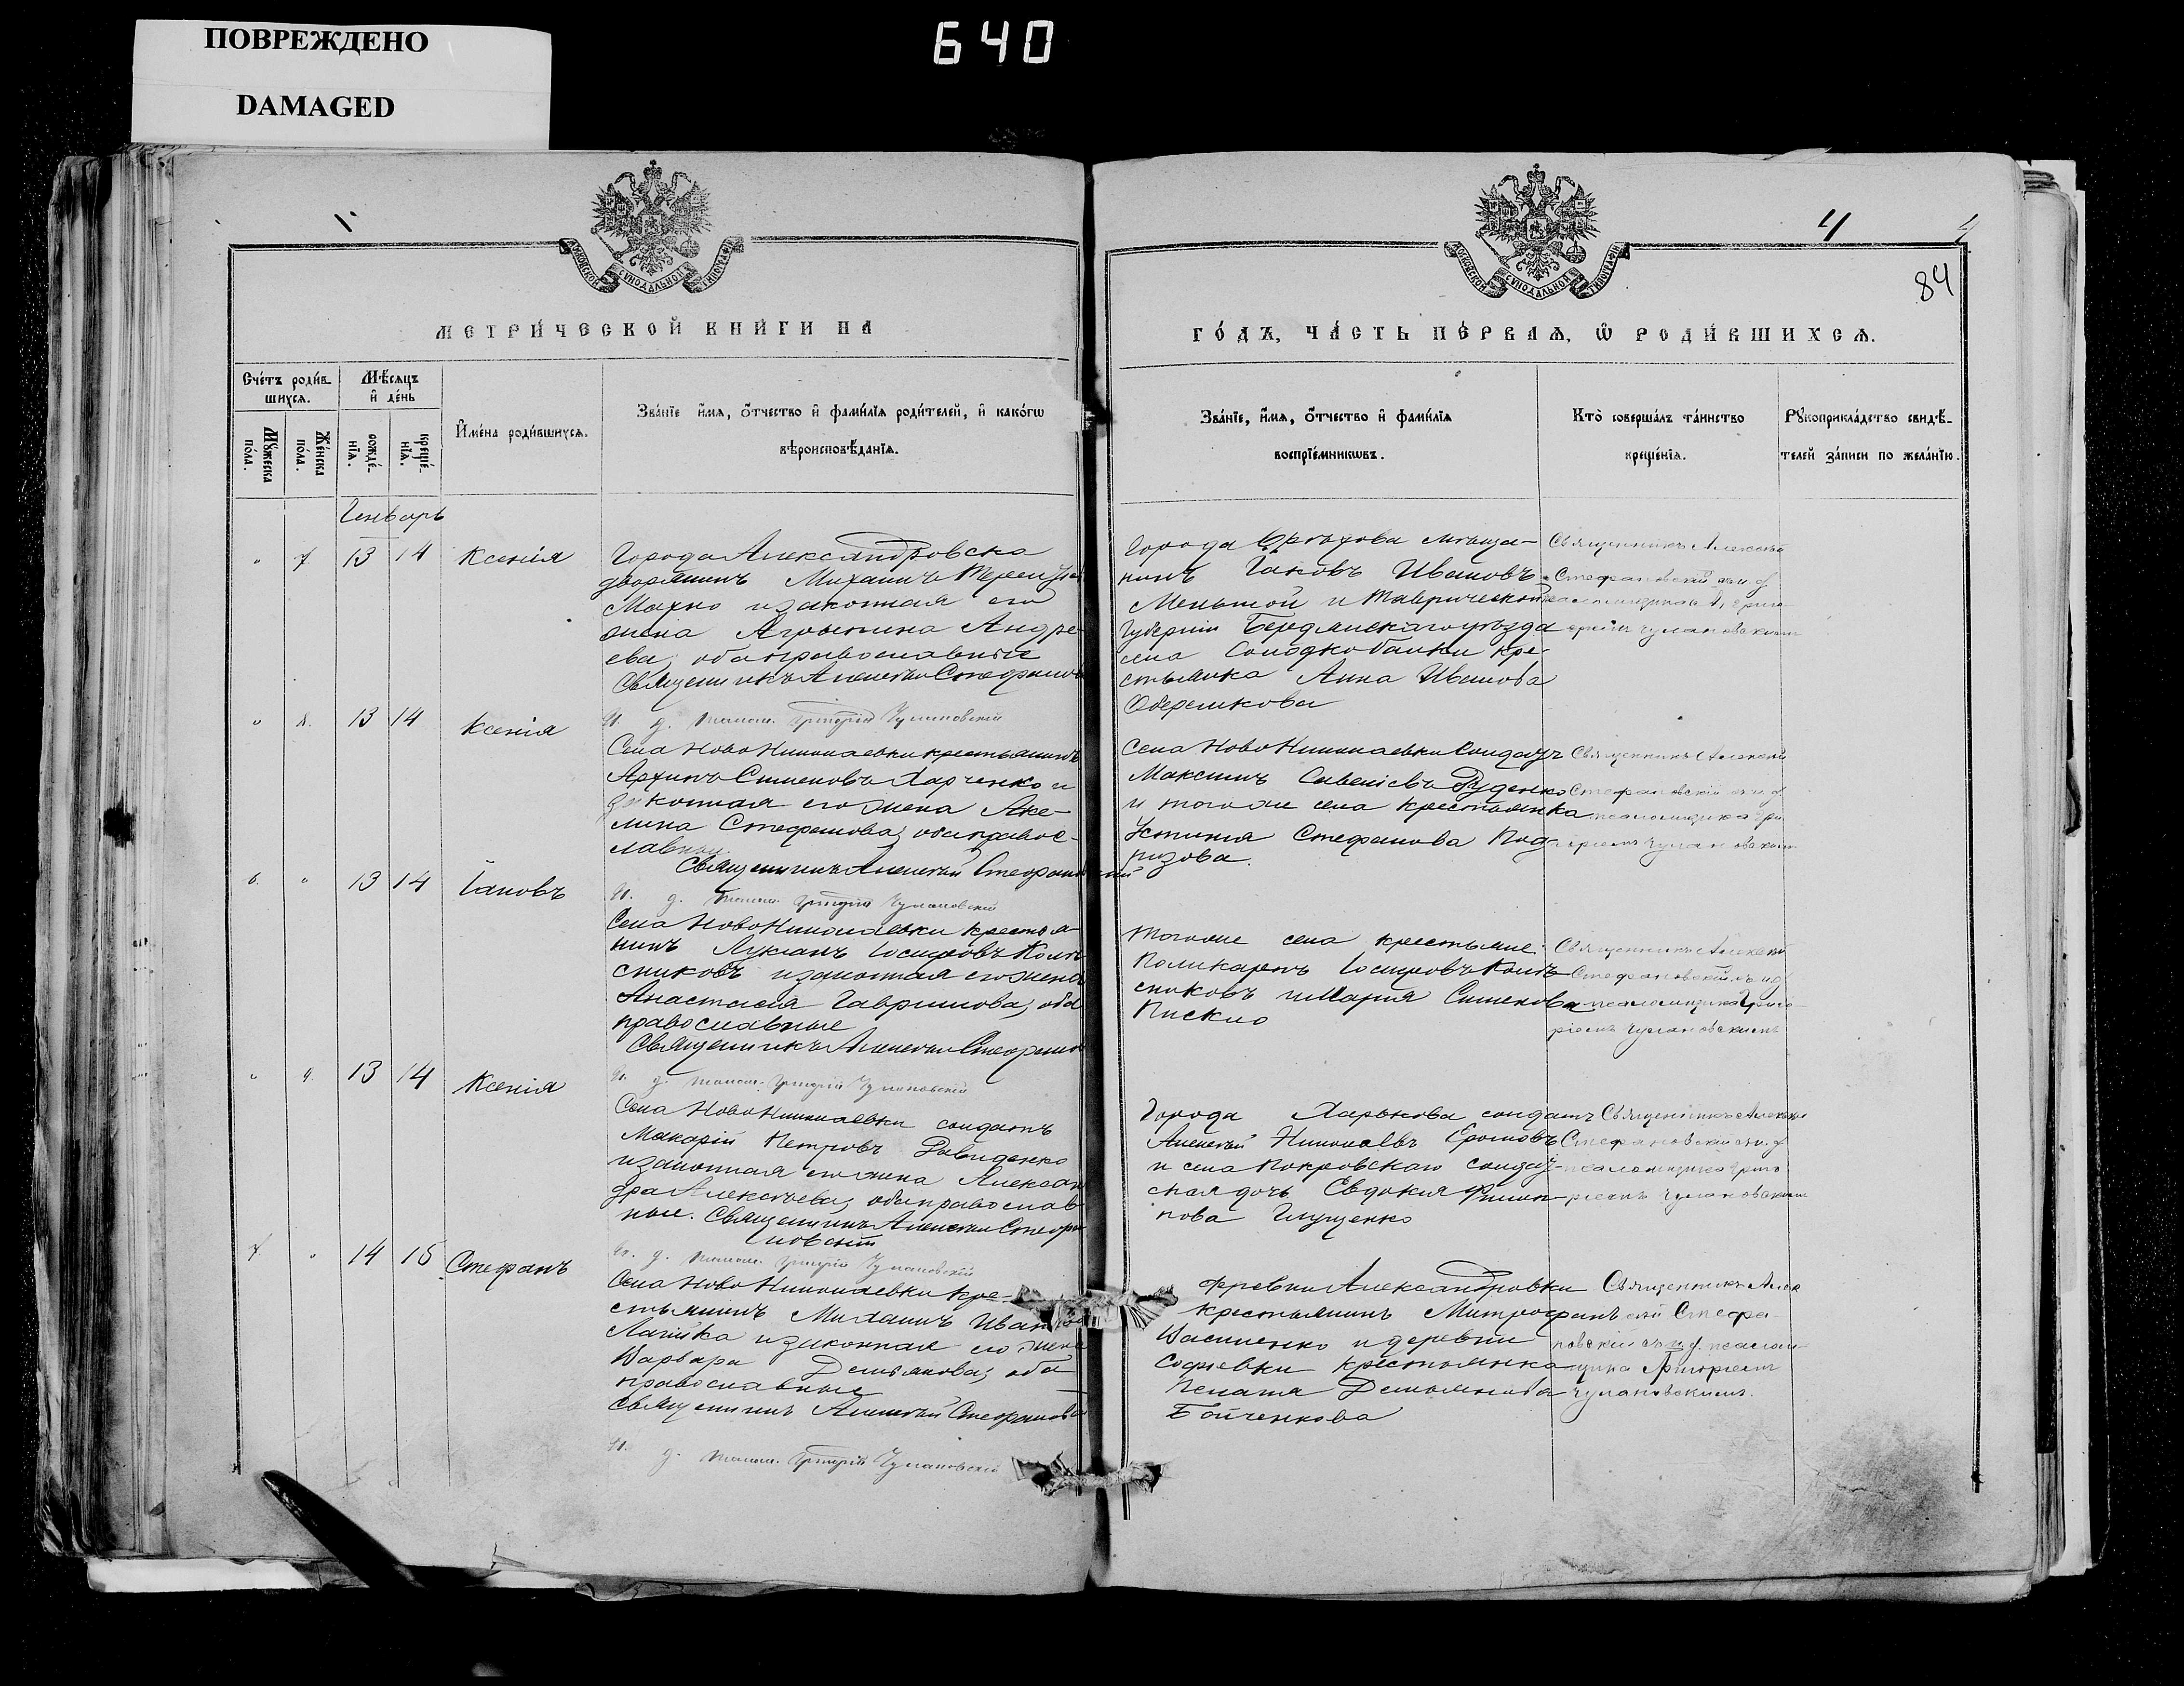 ПОВРЕЖДЕНО
DAMAGED
640
4
84
МОСКОВСКОЙ СУНОДАЛЬНОЙ ТИПОГРАФІИ
МЕТРИ́ЧЕСКОЙ КНИ́ГИ НА
Сче́тъ роди́в-
шихсѧ.
Мѣ́сѧцъ
и҆ де́нь
Мꙋ́жеска
по́ла.
Же́нска
по́ла.
рожде́-
нїѧ.
креще́-
нїѧ.
И҆мена̀ роди́вшихсѧ.
Зва́нїе и҆́мѧ, ѻ҆́тчество и҆ фамі́лїѧ роди́телей, и҆ како́гѡ
вѣроисповѣ́данїѧ.
Генварь
" 7 13 14 Ксенія
Города Александровска
дворянинъ Михаилъ
Махно и законная его
жена Агрыпина Андре-
ева, оба православные
Священникъ Алексѣй Стефанов
И. д. псалом. Григорій Чулановскій
" 8. 13 14 Ксенія
Села НовоНиколаевки крестьянинъ
Архипъ Симеоновъ Харченко и
законная его жена Аке-
лина Стефанова, оба правос-
лавные
Священникъ Алексѣй Стефановскій
И. д. псалом. Григорій Чулановскій
6. " 13 14 Іаковъ
Села НовоНиколаевки крестья-
нинъ Лукіанъ Іосифовъ Колѣ
сниковъ и законная его жена
Анастасія Гаврилова, оба
православные
Священникъ Алексѣй Стефанов
И. д. псалом. Григорій Чулановскій
" 9. 13 14 Ксенія
Села НовоНиколаевки солдатъ
Макарій Петровъ Давиденко
и законная его жена Алексан
дра Алексѣева, оба православ
ные. Священникъ Алексѣй Стефа
новскій
И. д. псалом. Григорій Чулановскій
7. " 14 15 Стефанъ
Села НовоНиколаевки кре-
стьянинъ Михаилъ Иванов
и законная его жена
Варвара Демьянова, оба
православные
Священникъ Алексѣй Стефановс
И. д. псалом. Григорій Чулановскій
МОСКОВСКОЙ СУНОДАЛЬНОЙ ТИПОГРАФІИ
ГО́ДЪ, ЧА́СТЬ ПЕ́РВАѦ, Ѡ҆ РОДИ́ВШИХСѦ.
Зва́нїе, и҆́мѧ, ѻ҆́тчество и҆ фамі́лїѧ
воспрїе́мникѡвъ.
Кто̀ соверша́лъ та́инство
креще́нїѧ.
Рꙋкоприкла́дство свидѣ́-
телей за́писи по жела́нїю.
Города Орѣхова мѣща-
нинъ Іаковъ Ивановъ
Меньшой и Таврической
Губерніи Бердянскаго уѣзда
села Солодкобалки кре-
стьянка Анна Иванова
Священникъ Алексѣй
Стефановскій съ и. д.
псаломщика Григо-
ріемъ Чулановскимъ
Села НовоНиколаевки Солдатъ
Максимъ Савеліевъ Руденко
и того же села крестьянка
Устинія Стефанова Под-
ризова.
Священникъ Алексѣй
Стефановскій съ и. д.
псаломщика Гри-
горіемъ Чулановскимъ
Того же села крестьяне
Поликарпъ Іосифовъ Колѣ-
сниковъ и Марія Симеонова
Священникъ Алексѣй
Стефановскій съ и. д.
псаломщика Григо-
ріемъ Чулановскимъ
Города Харькова солдатъ
Алексѣй Николаевъ
и села Покровскаго солдат-
ская дочь Евдокія Филип-
пова Глущенко
Священникъ Алексѣй
Стефановскій съ и. д.
псаломщика Григо-
ріемъ Чулановскимъ
деревни Александровки
крестьянинъ Митрофанъ
Василенко и деревни
Софіевки крестьянка
Пелагія Демьянова
Бойченкова
Священникъ Алек
сѣй Стефа
новскій съ и. д. псалом-
щика Григоріемъ
Чулановскимъ.